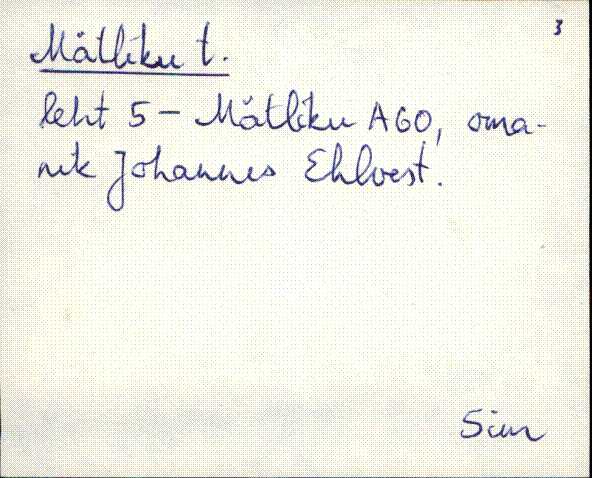 3
Mätliku t.
leht 5 - Mätliku A60, oma-
nik Johannes Ehlvest.
Sim